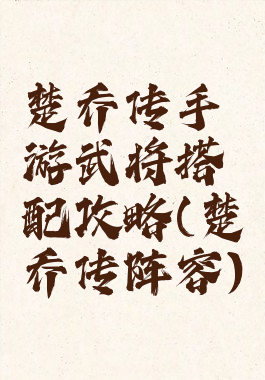 楚乔传手
游武将搭
配攻略(楚
乔传阵容)